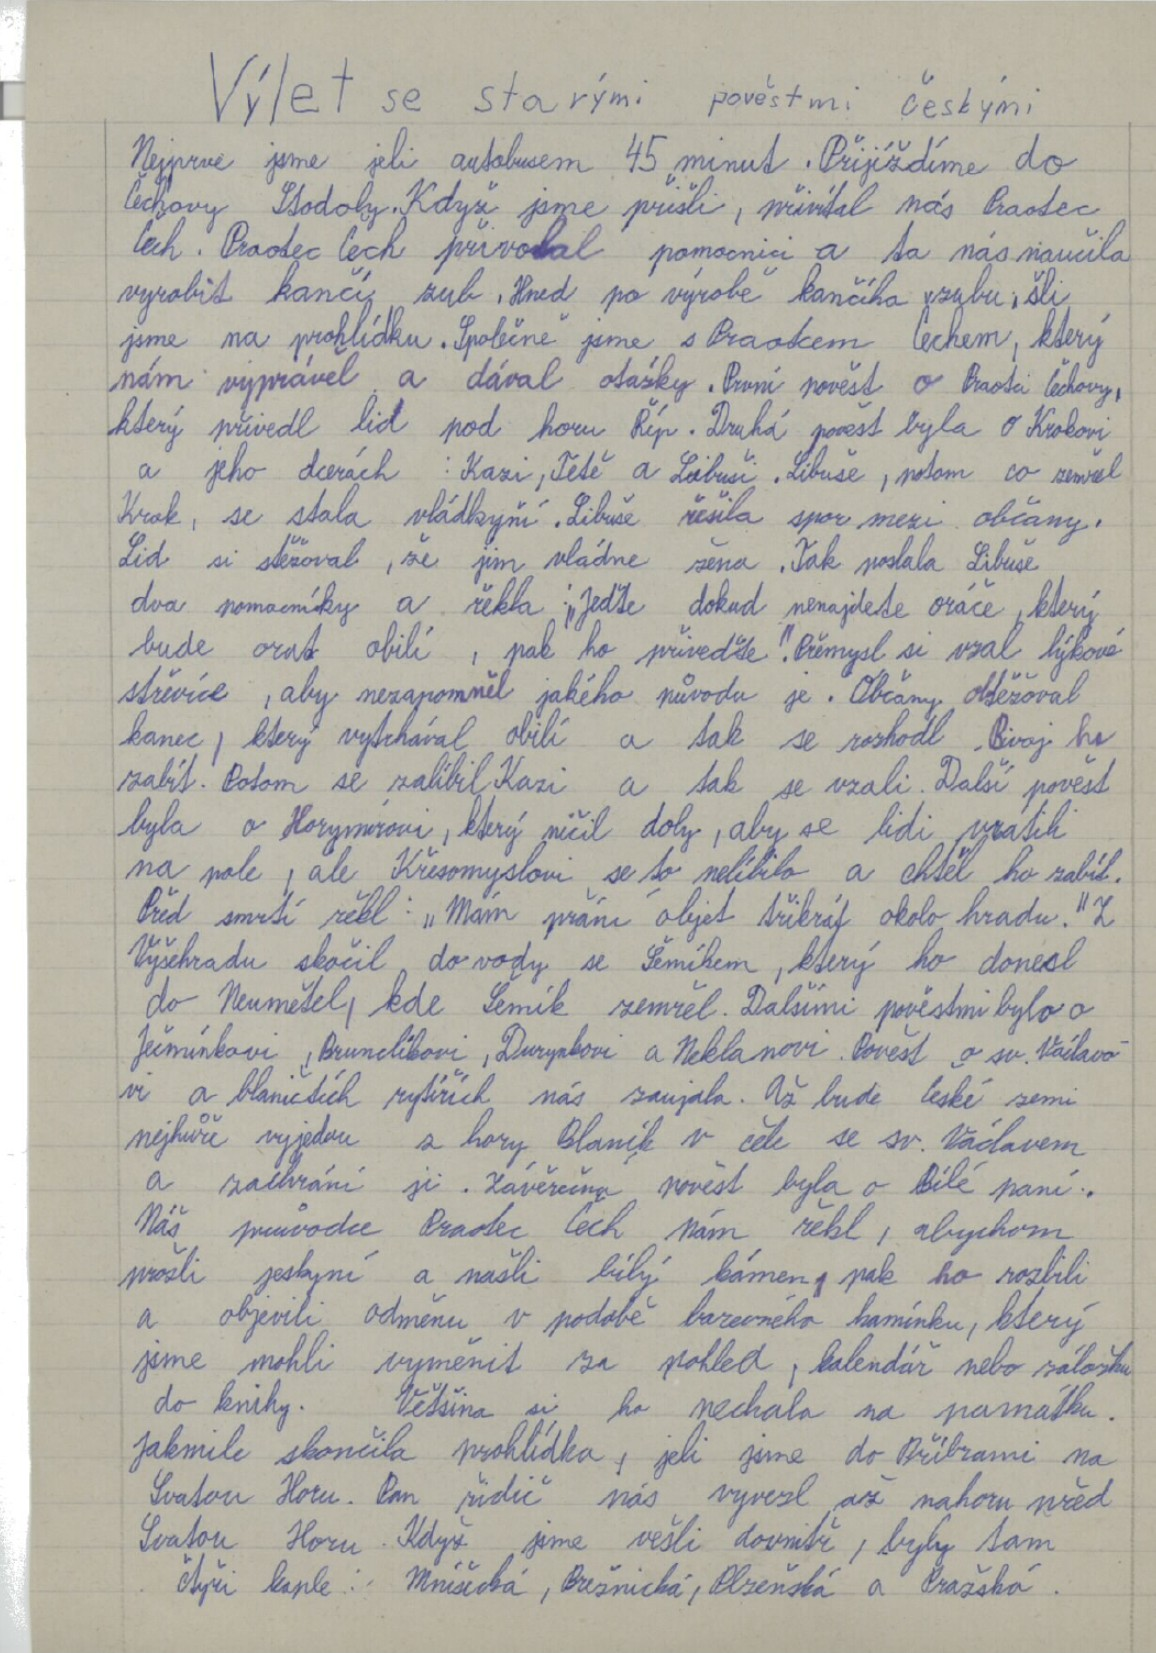 Výlet se starými pověstmi českými
Nejprve jsme jeli autobusem 45 minut. Přijíždíme do
Čechovy Stodoly. Když jsme přišli, přivítal nás Praotec
Čech. Praotec Čech přivolal pomocnici a ta nás naučila
vyrobit kančí zub. Hned po výrobě kančího zubu, šli
jsme na prohlídku. Společně jsme s Praotcem Čechem, který
nám vyprávěl a dával otázky. První pověst o Praotci Čechovy,
který přivedl lid pod horu Říp. Druhá pověst byla o Krokovi
a jeho dcerách : Kazi, Tetě a Libuši. Libuše, potom co zemřel
Krok, se stala vládkyní. Libuše řešila spor mezi občany.
Lid si stěžoval, že jim vládne žena. Tak poslala Libuše
dva pomocníky a řekla : „Jeďte dokud nenajdete oráče, který
bude orat obilí, pak ho přiveďte". Přemysl si vzal lýkové
střevíce, aby nezapomněl jakého původu je. Občany obtěžoval
kanec, který vytrhával obilí a tak se rozhodl Bivoj ho
zabít. Potom se zalíbil Kazi a tak se vzali. Další pověst
byla o Horymírovi, který ničil doly, aby se lidi vrátili
na pole, ale Křesomyslovi se to nelíbilo a chtěl ho zabít.
Před smrtí řekl : „Mám přání objet třikrát okolo hradu." Z
Vyšehradu skočil do vody se Šemíkem, který ho donesl
do Neumětel, kde Šemík zemřel. Dalšími pověstmi bylo o
Ječmínkovi, Bruncíkovi, Durynkovi a Neklanovi. Pověst o sv. Václavo-
vi a blanických rytířích nás zaujala. Až bude české zemi
nejhůře vyjedou z hory Blaník v čele se sv. Václavem
a zachrání ji. Závěrečná pověst byla o Bílé paní.
Náš průvodce Praotec Čech nám řekl, abychom
prošli jeskyní a našli bílý kámen, pak ho rozbili
a objevili odměnu v podobě barevného kamínku, který
jsme mohli vyměnit za pohled, kalendář nebo záložku
do knihy. Většina si ho nechala na památku.
Jakmile skončila prohlídka, jeli jsme do Příbrami na
Svatou Horu. Pan řidič nás vyvezl až nahoru před
Svatou Horu. Když jsme vešli dovnitř, byly tam
čtyři kaple : Mníšecká, Březnická, Plzeňská a Pražská.